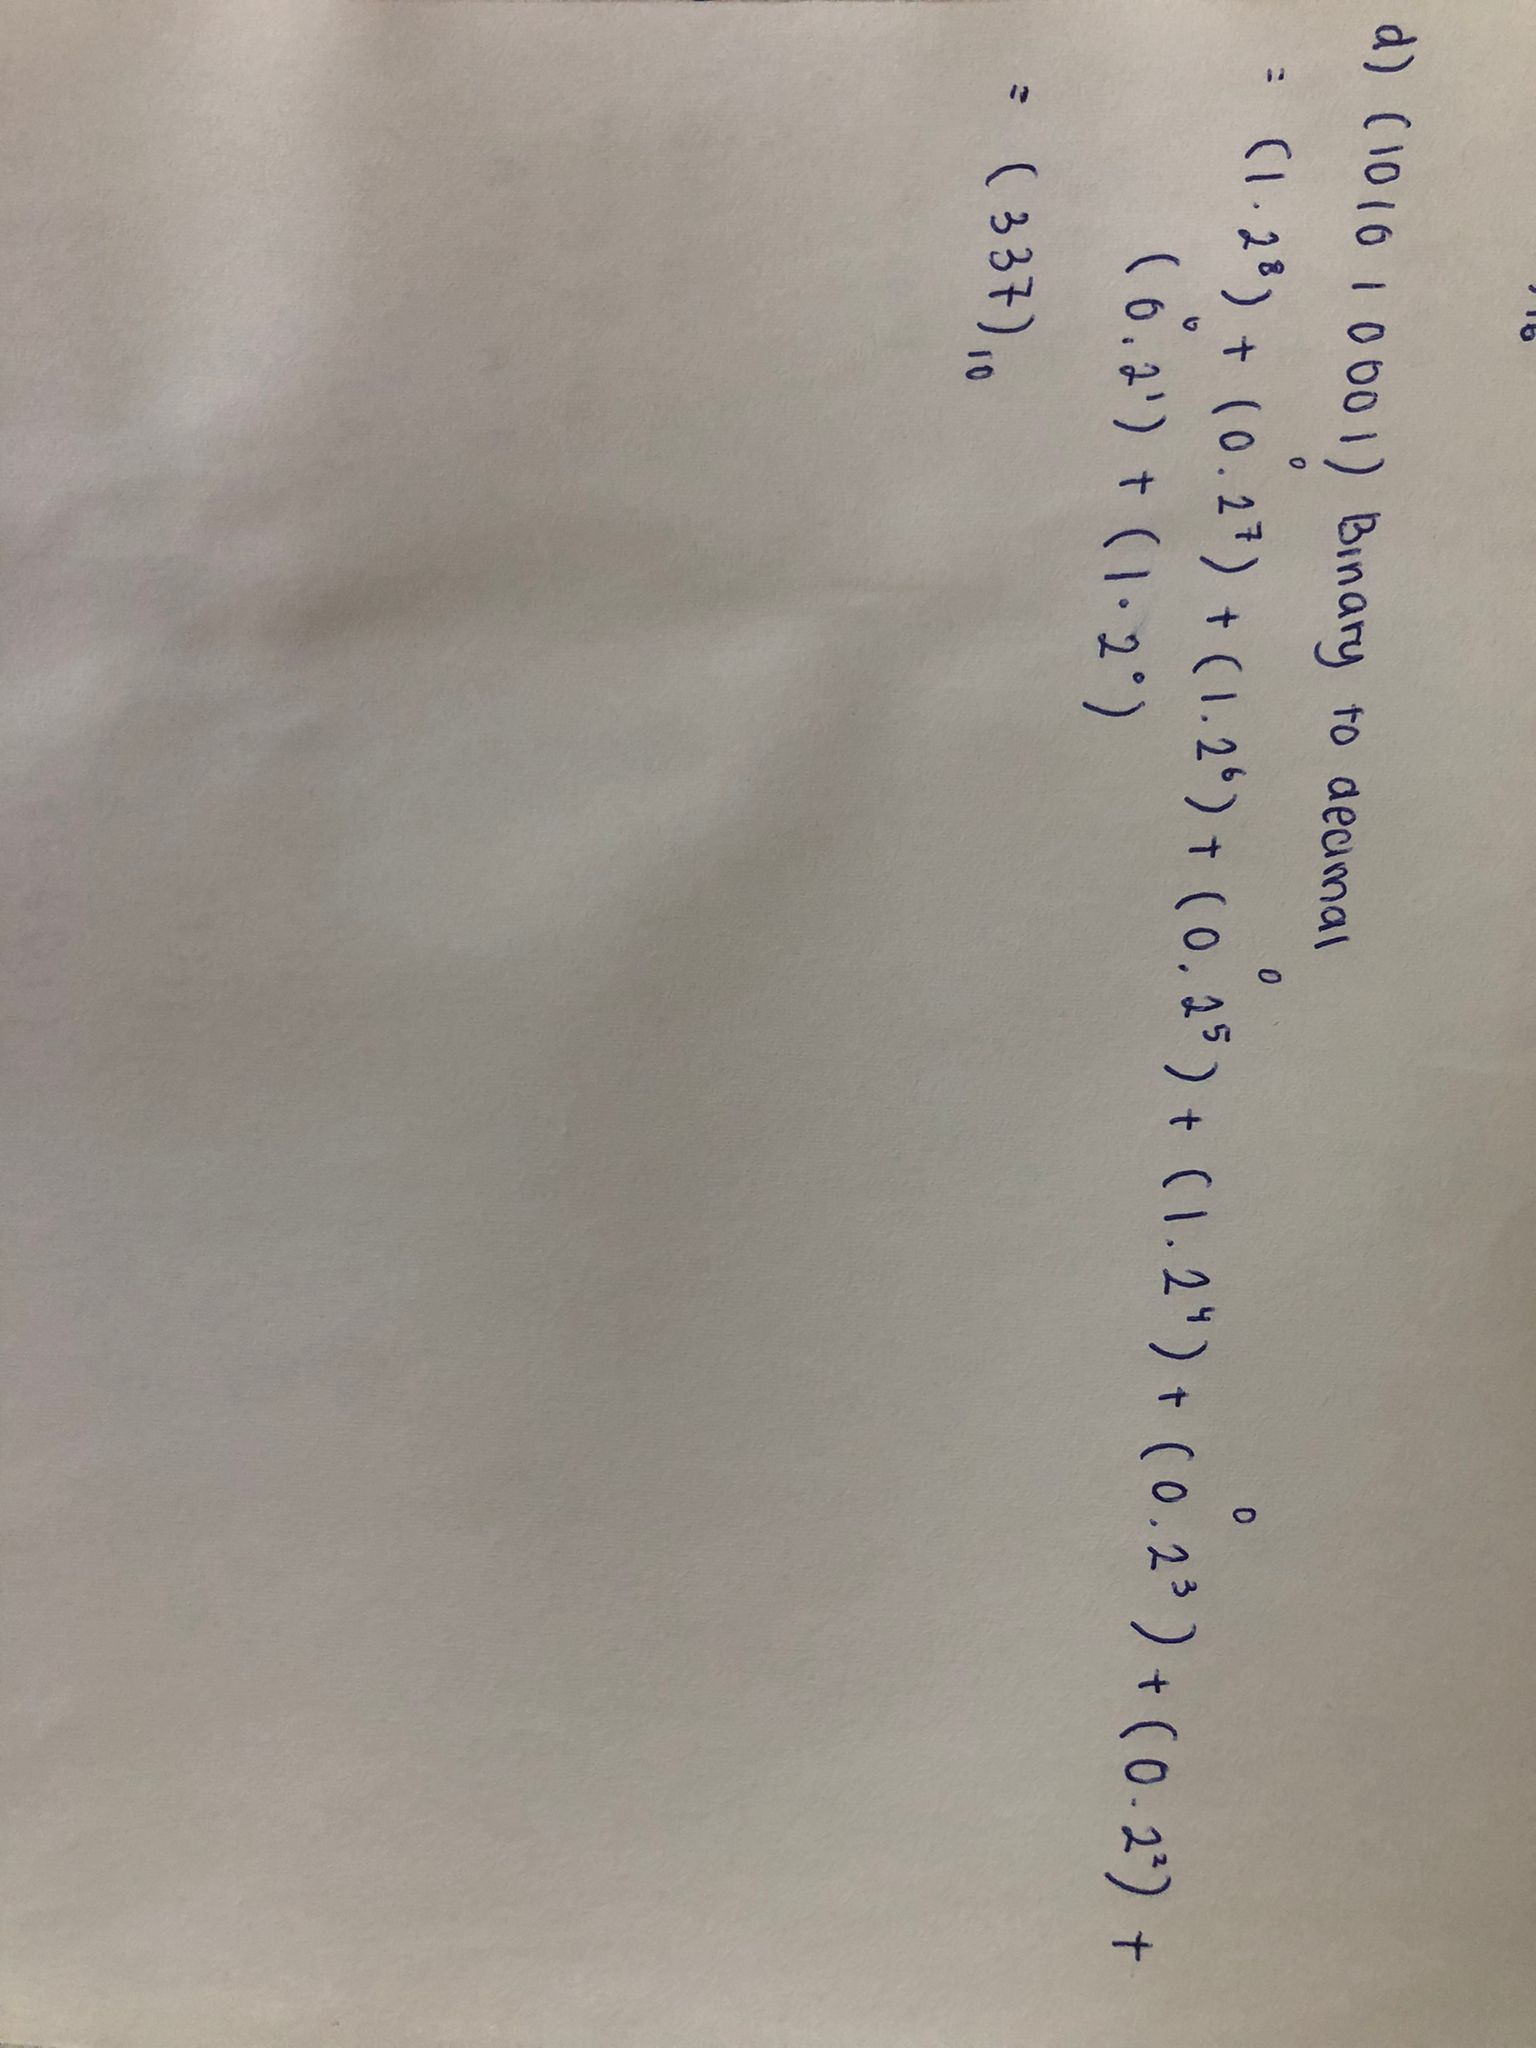 d) (1010 1 0001) Binary to decimal
= (1.2⁸) + (0.2⁷) + (1.2⁶) + (0.2⁵) + (1.2⁴) + (0.2³) + (0.2²) +
(0.2¹) + (1.2⁰)
= (337)₁₀